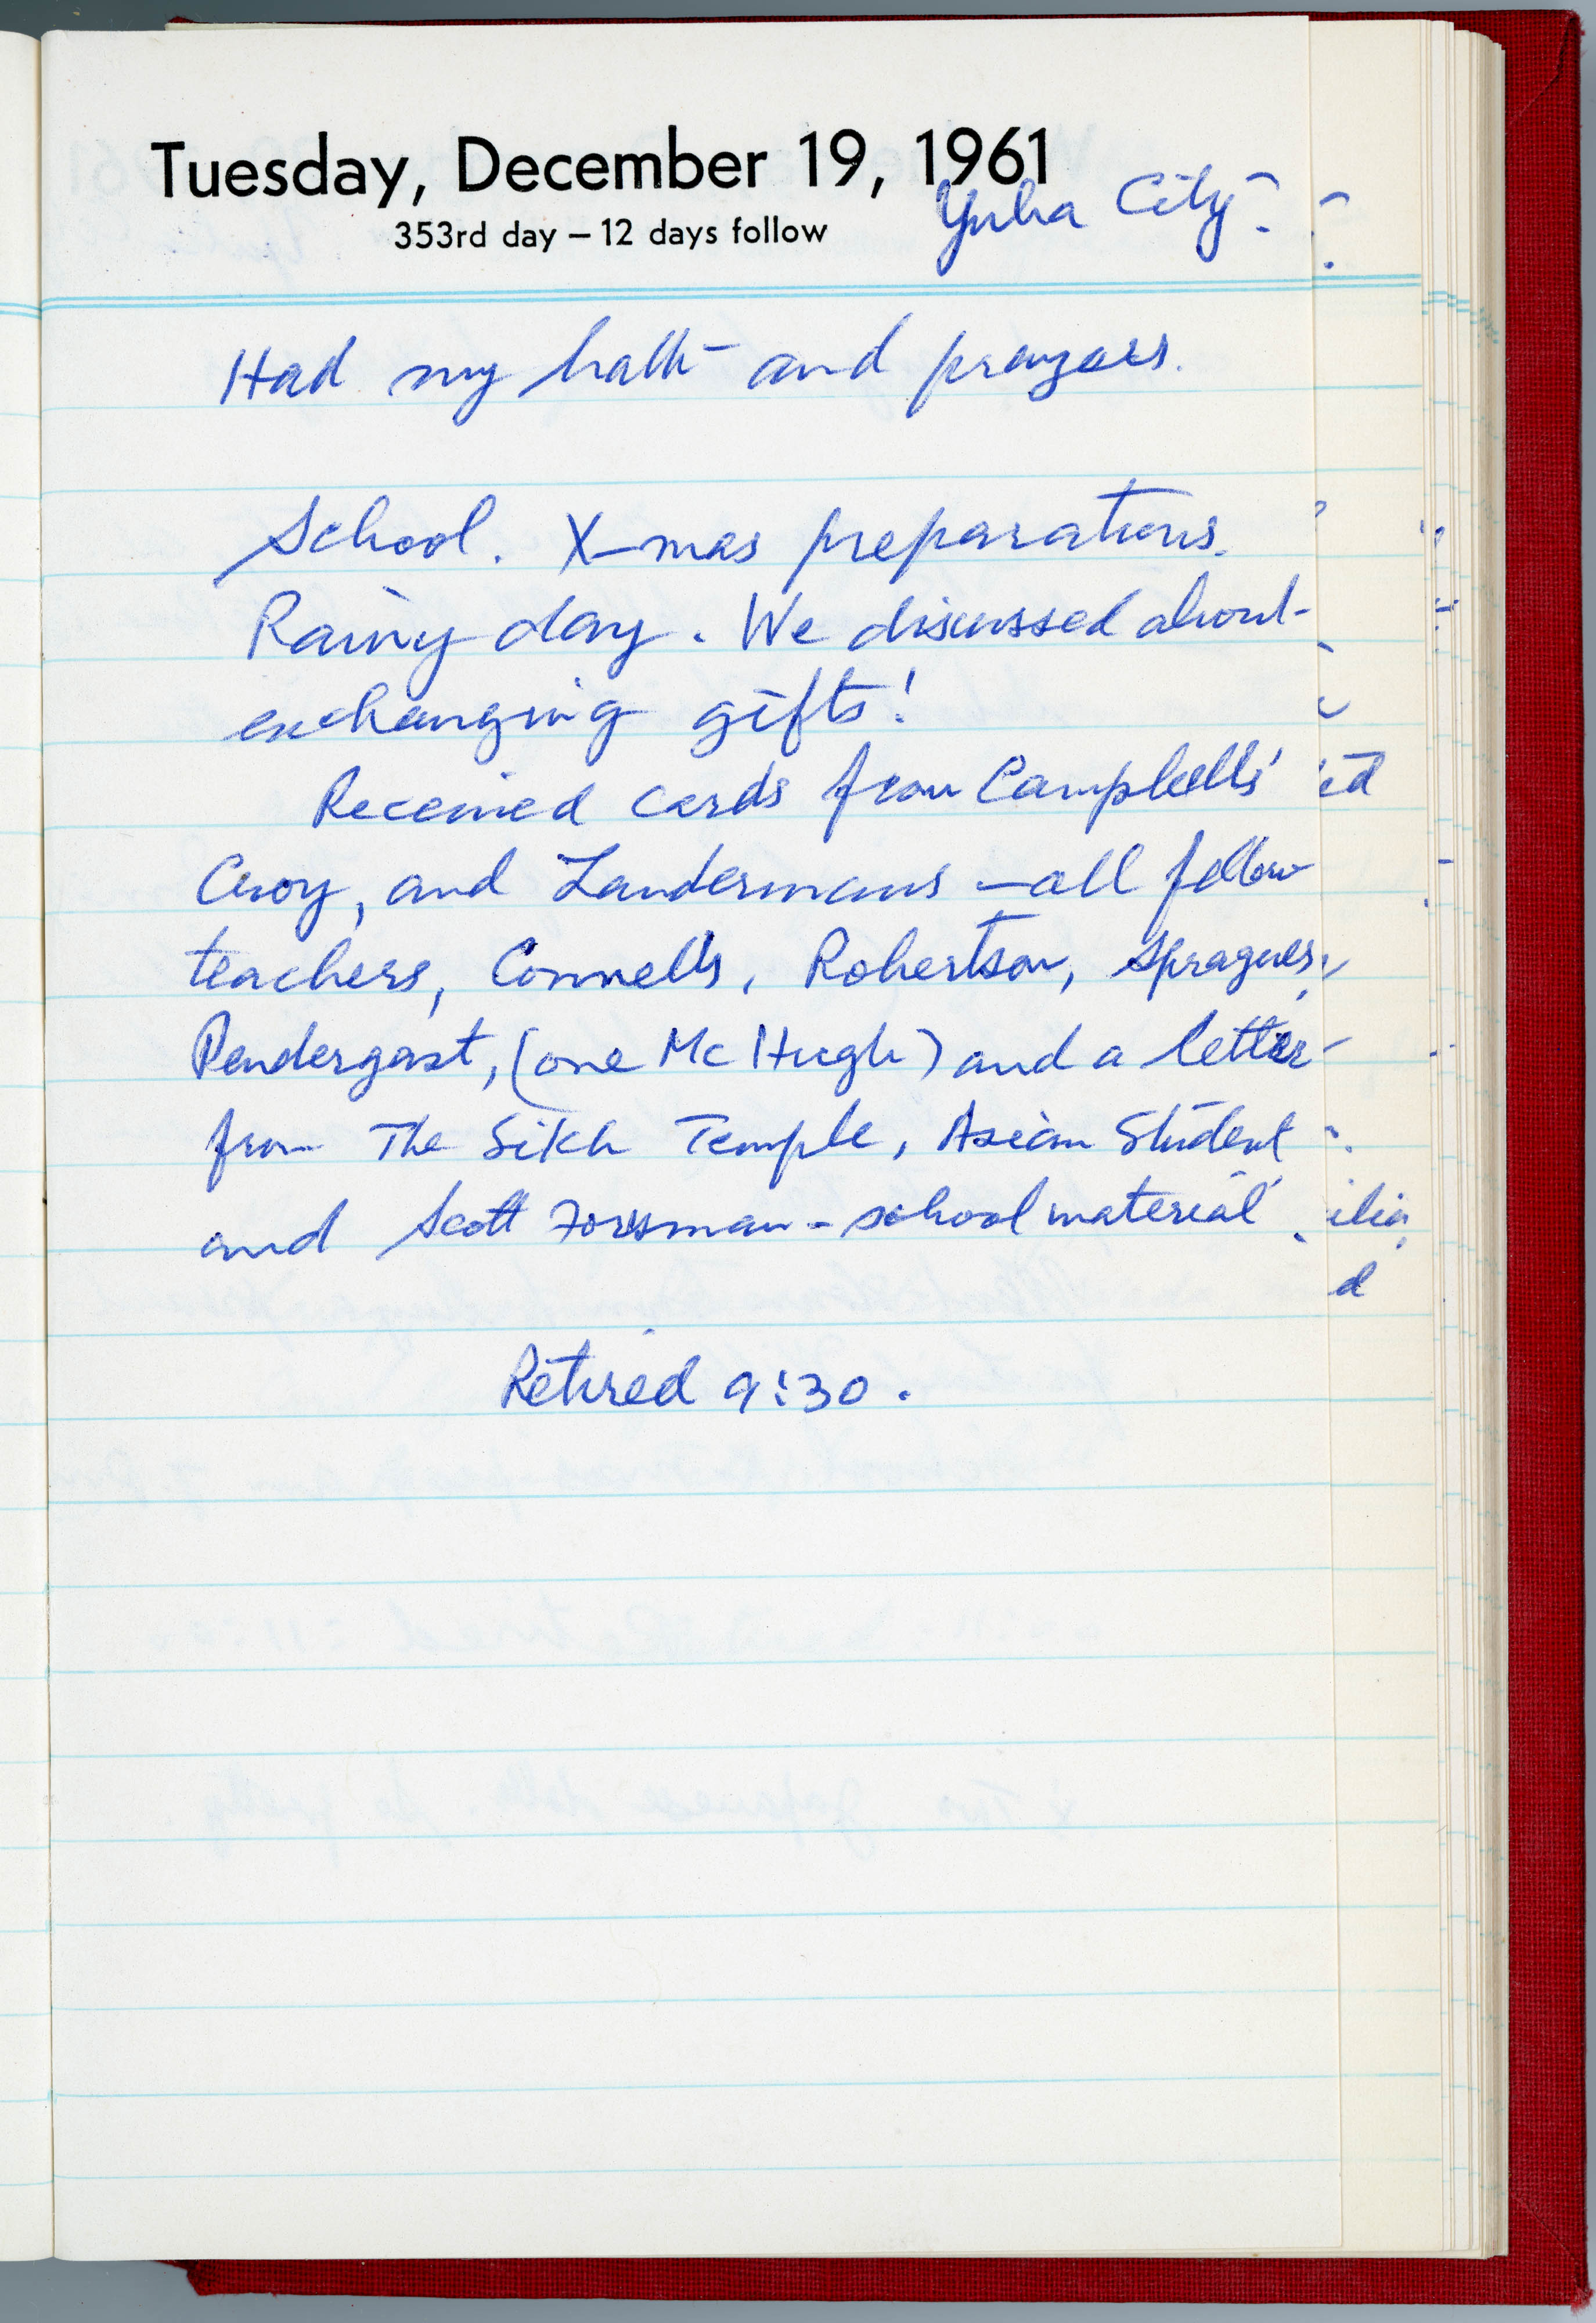 Tuesday, December 19, 1961
353rd day – 12 days follow
Yuba City.
Had my bath and prayers.
School. X-mas preparations.
Rainy day. We discussed about
exchanging gifts!
Received cards from Campbells'
and Landermans – all fellow
teachers, Connells, Robertson, Spragues,
Pendergast, (one McHugh) and a letter
from The Sikh Temple, Asian Student
and Scott Forsman - school material.
Retired 9:30.